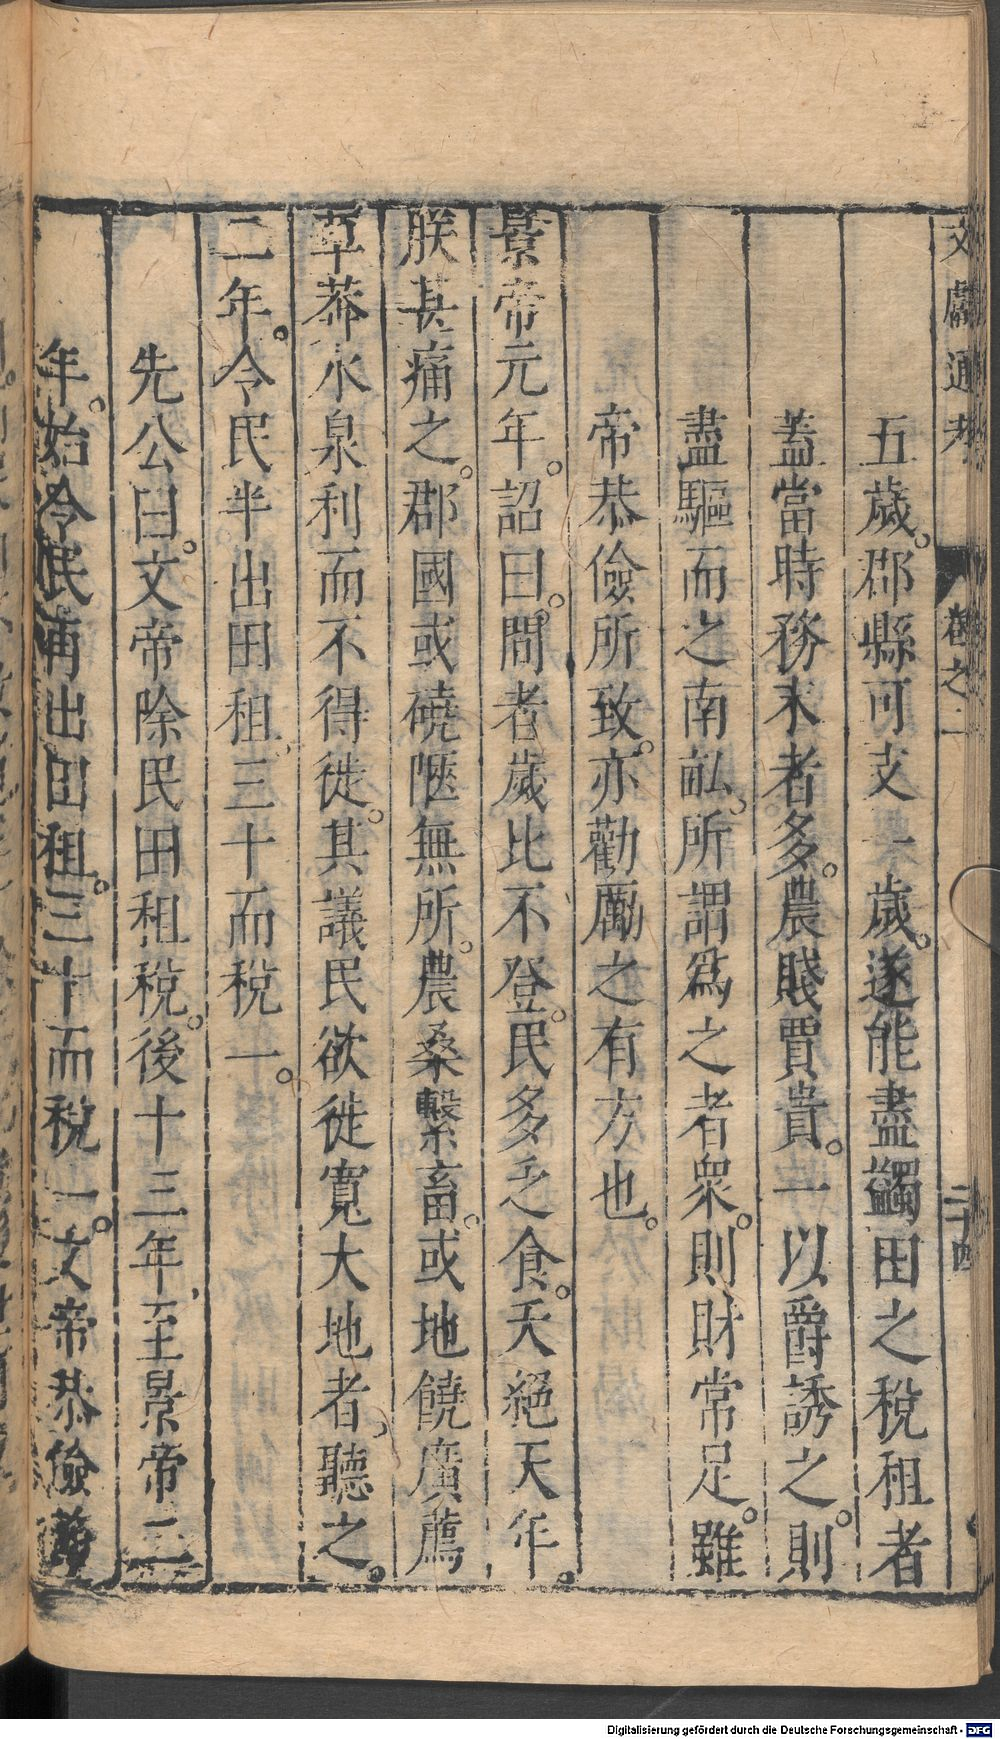 文獻通考 卷之一 二十四
五歲。郡縣可支一歲。遂能盡蠲田之稅租者
蓋當時務末者多。農賤賈貴。一以爵誘之。則
盡驅而之南畝。所謂為之者衆。則財常足。雖
帝恭儉所致。亦勸勵之有方也。
景帝元年。詔曰。間者歲比不登。民多乏食。夭絕天年。
朕甚痛之。郡國或磽陿無所。農桑繫畜。或地饒廣薦
草莽水泉利而不得徙。其議民欲徙寬大地者、聽之。
二年。令民半出田租、三十而稅一。
先公曰。文帝除民田租稅。後十三年、至景帝二
年。始令民再出田租。三十而稅一。文帝恭儉
Digitalisierung gefördert durch die Deutsche Forschungsgemeinschaft - DFG